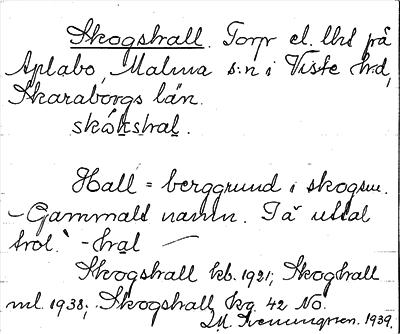 Skogshall. Torp el. lht på
Aplabo, Malma s:n i Viste hrd,
Skaraborgs län.
skå̀kshal.
Hall = berggrund i skogsm.
- Gammalt namn. I ä uttal
trol. -hal —
Skogshall kb. 1921; Skoghall
ml. 1938; Skogshall kg. 42 No.
1939.